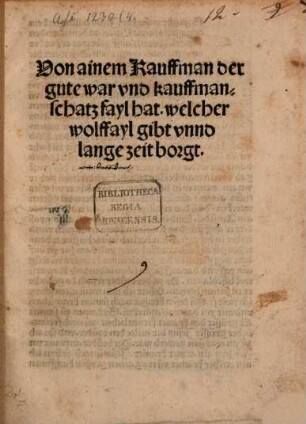 Asc. 1239 (4.
12 -
Von ainem Kauffman der
gute war vnd kauffman-
schatz fayl hat. welcher
wolffayl gibt vnnd
lange zeit borgt.
BIBLIOTHECA
REGIA
MONACENSIS.